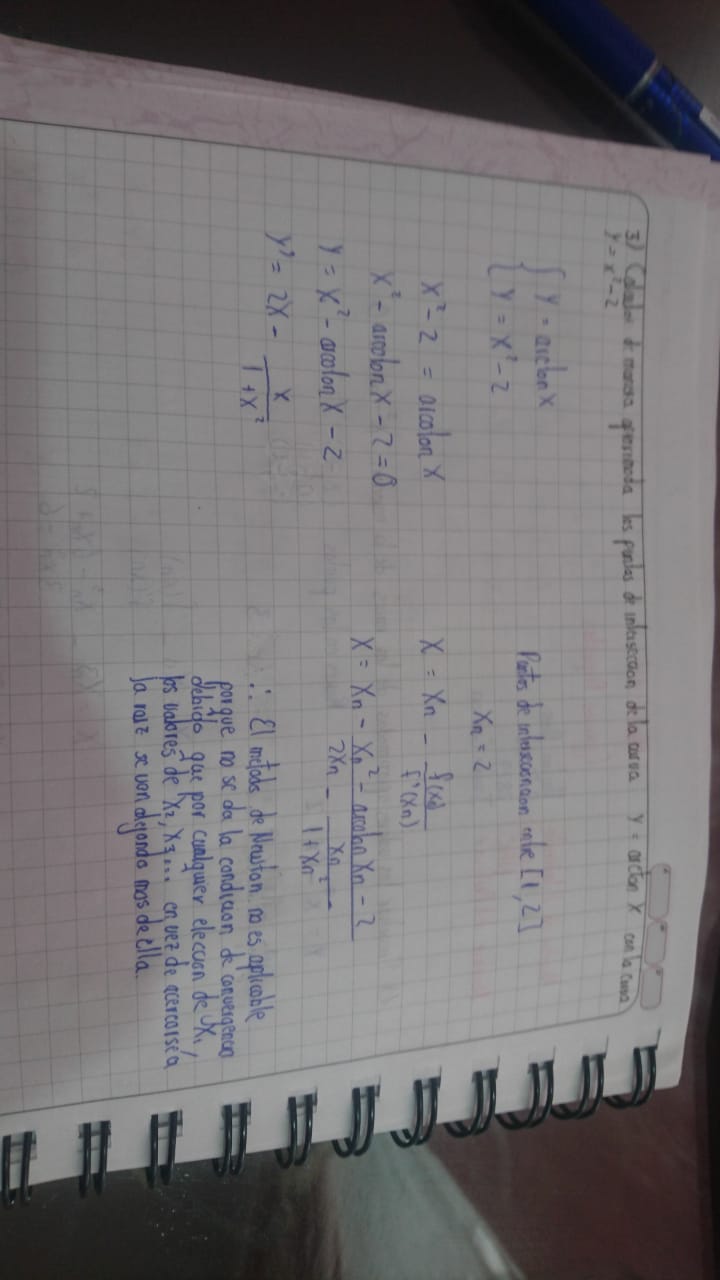 3) Calcular de manera aproximada los puntos de interseccion de la curva y = arctan x con la curva
y = x² - 2
{ y = arctan x
y = x² - 2
x² - 2 = arcotan x
x² - arcotan x - 2 = 0
y = x² - arcotan x - 2
y' = 2x - x / (1 + x²)
Puntos de interseccion entre [1, 2]
Xn = 2
X = Xn - f(x) / f'(Xn)
X = Xn - (Xn² - arcotan Xn - 2) / (2Xn - Xn / (1 + Xn²))
∴ El metodo de Newton no es aplicable
porque no se da la condicion de convergencia
debido que por cualquier eleccion de X₁,
los valores de X₂, X₃... en vez de acercarse a
la raiz se van alejando mas de ella.